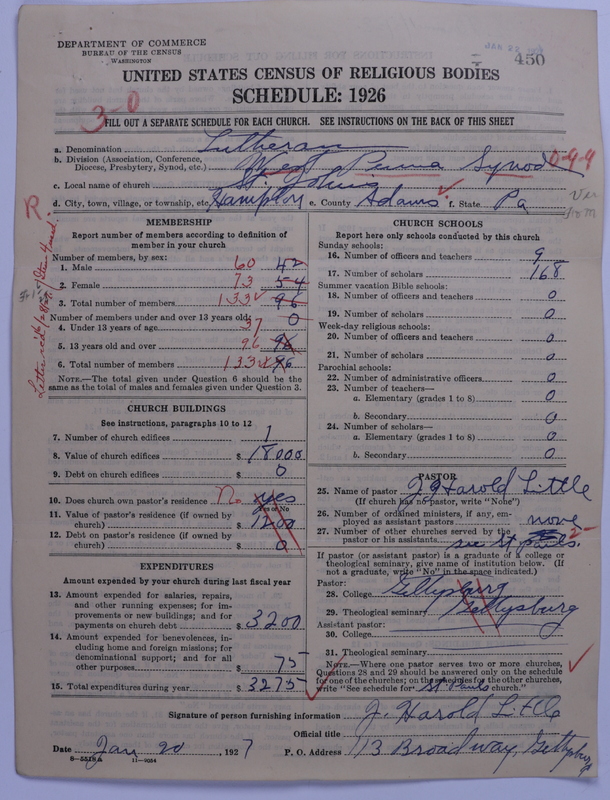 DEPARTMENT OF COMMERCE
BUREAU OF THE CENSUS
WASHINGTON
450
UNITED STATES CENSUS OF RELIGIOUS BODIES
SCHEDULE: 1926
3-0
FILL OUT A SEPARATE SCHEDULE FOR EACH CHURCH. SEE INSTRUCTIONS ON THE BACK OF THIS SHEET
a. Denomination Lutheran
b. Division (Association, Conference, Diocese, Presbytery, Synod, etc.) West Penna Synod 0-9-9
c. Local name of church St. Johns
d. City, town, village, or township, etc. Hampton e. County Adams f. State Pa
R.
MEMBERSHIP
Report number of members according to definition of member in your church
Number of members, by sex:
1. Male 60 42
2. Female 73 54
3. Total number of members 133 96
Number of members under and over 13 years old: 0
4. Under 13 years of age 37
5. 13 years old and over 96 96
6. Total number of members 133 96
NOTE.—The total given under Question 6 should be the same as the total of males and females given under Question 3.
CHURCH BUILDINGS
See instructions, paragraphs 10 to 12
7. Number of church edifices 1
8. Value of church edifices $ 18000
9. Debt on church edifices $ 0
10. Does church own pastor's residence No yes
Yes or No
11. Value of pastor's residence (if owned by church) $ 1200
12. Debt on pastor's residence (if owned by church) $ 0
EXPENDITURES
Amount expended by your church during last fiscal year
13. Amount expended for salaries, repairs, and other running expenses; for improvements or new buildings; and for payments on church debt $ 3200
14. Amount expended for benevolences, including home and foreign missions; for denominational support; and for all other purposes $ 75
15. Total expenditures during year $ 3275
CHURCH SCHOOLS
Report here only schools conducted by this church
Sunday schools:
16. Number of officers and teachers 9
17. Number of scholars 168
Summer vacation Bible schools:
18. Number of officers and teachers 0
19. Number of scholars 0
Week-day religious schools:
20. Number of officers and teachers 0
21. Number of scholars 0
Parochial schools:
22. Number of administrative officers 0
23. Number of teachers—
a. Elementary (grades 1 to 8) 0
b. Secondary 0
24. Number of scholars—
a. Elementary (grades 1 to 8) 0
b. Secondary 0
PASTOR
25. Name of pastor J. Harold Little
(If church has no pastor, write "None")
26. Number of ordained ministers, if any, employed as assistant pastors none
27. Number of other churches served by the pastor or his assistants see St Pauls 2-
If pastor (or assistant pastor) is a graduate of a college or theological seminary, give name of institution below. (If not a graduate, write "No" in the space indicated.)
Pastor:
28. College Gettysburg
29. Theological seminary Gettysburg
Assistant pastor:
30. College
31. Theological seminary
NOTE.—Where one pastor serves two or more churches, Questions 28 and 29 should be answered only on the schedule for one of the churches; on the schedules for the other churches, write "See schedule for St Pauls church."
Signature of person furnishing information J. Harold Little
Official title
Date Jan 20, 1927 P. O. Address 13 Broadway, Gettysburg
8-5518a 11-9054